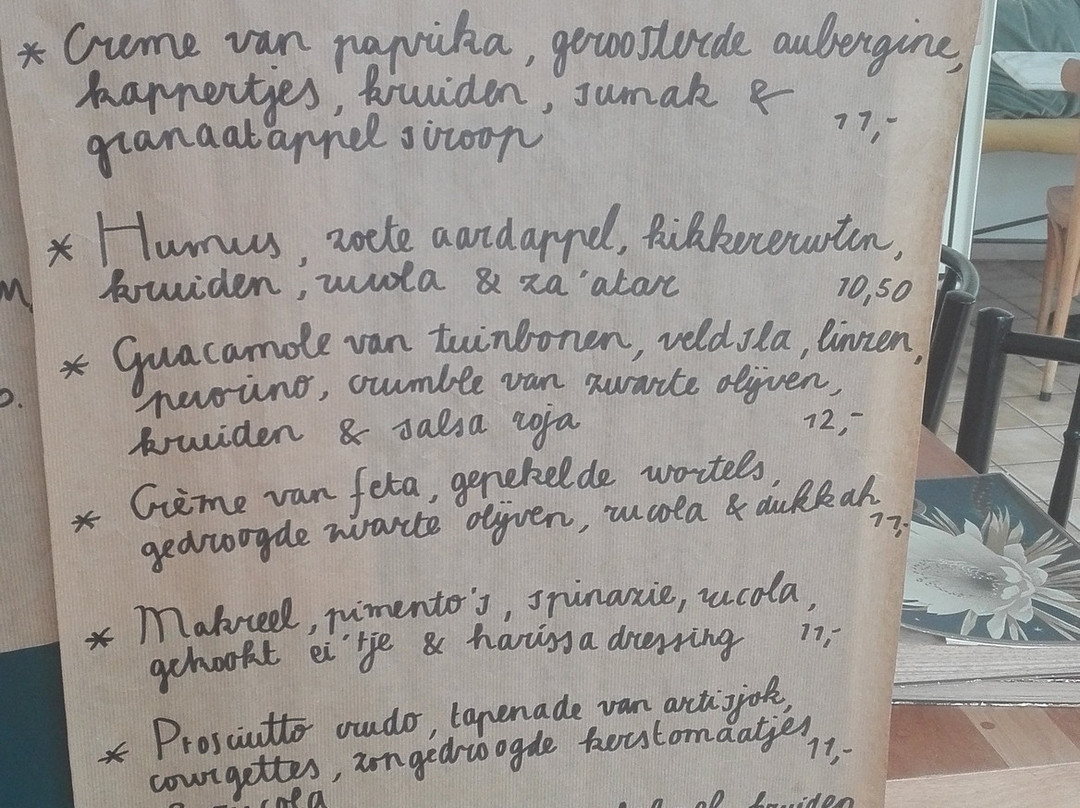 * Creme van paprika, geroosterde aubergine,
kappertjes, kruiden, sumak &
granaatappel siroop 11,-
* Humus, zoete aardappel, kikkererwten,
kruiden, rucola & za'atar 10,50
* Guacamole van tuinbonen, veldsla, linzen,
pecorino, crumble van zwarte olijven,
kruiden & salsa roja 12,-
* Crème van feta, gepekelde wortels,
gedroogde zwarte olijven, rucola & dukkah 11,-
* Makreel, pimento's, spinazie, rucola,
gekookt ei'tje & harissa dressing 11,-
* Prosciutto crudo, tapenade van artisjok,
courgettes, zongedroogde kerstomaatjes 11,-
& rucola
kruiden